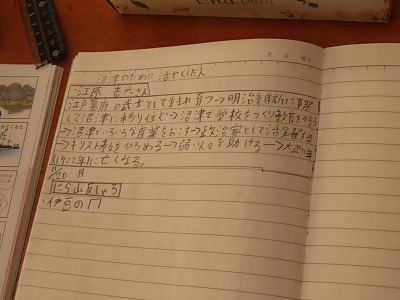 沼津のために活やくした人
江原 素六さん
江戸幕府の武士として生まれ育つ→明治維新に
して沼津に移り住む→沼津で学校をつくり教育を
→沼津でいろいろな産業をおこす→政治家として活
→キリスト教をひろめる→弱い人を助ける→大正11年
(1922年)に亡くなる。
11/20 月
にら山反しゃろ
・伊豆の